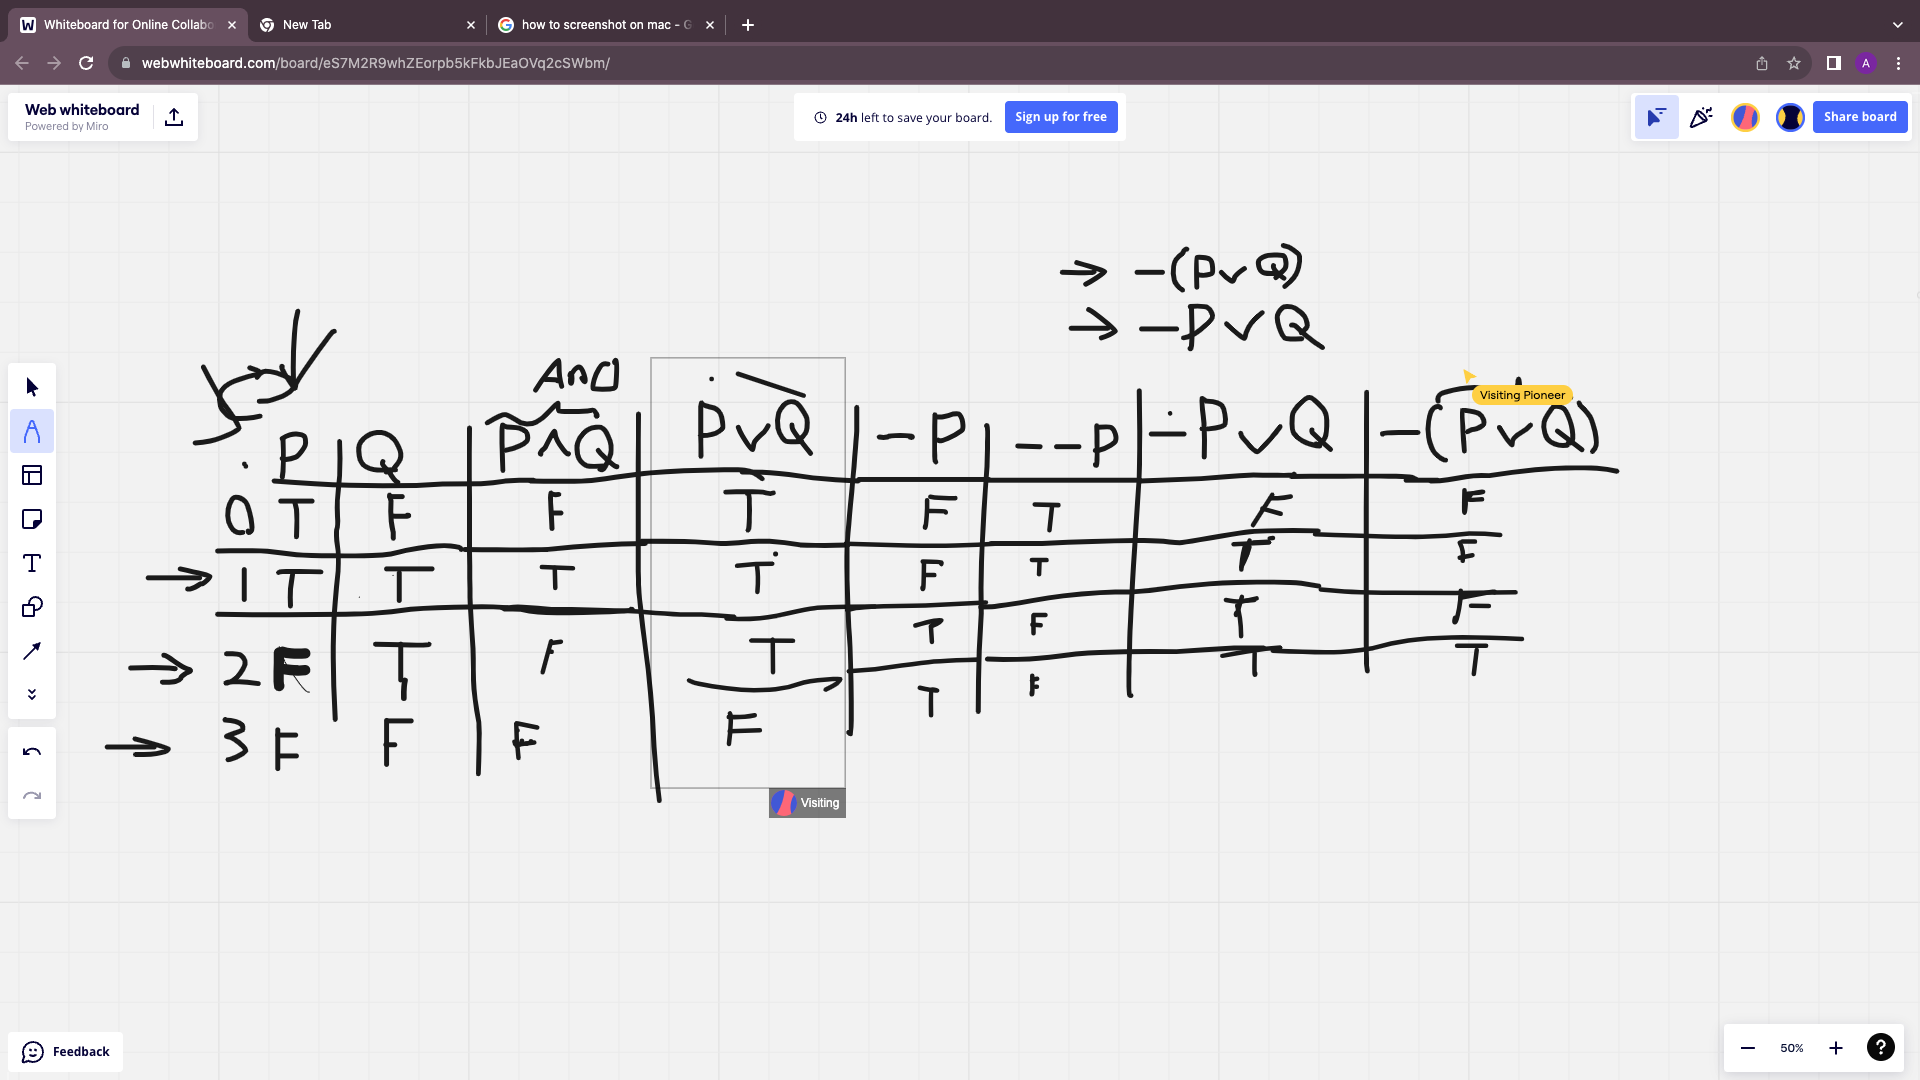 Whiteboard for Online Collabo
New Tab
how to screenshot on mac - G
webwhiteboard.com/board/eS7M2R9whZEorpb5kFkbJEaOVq2cSWbm/
Web whiteboard
Powered by Miro
24h left to save your board.
Sign up for free
A
Share board
→ -(P∨Q)
→ -P∨Q
And
Visiting Pioneer
P Q P∧Q P∨Q -P --P -P∨Q -(P∨Q)
0 T F F T F T F F
→ 1 T T T T F T T F
→ 2 F T F T T F T F
→ 3 F F F F T F T T
Visiting
Feedback
50%
?